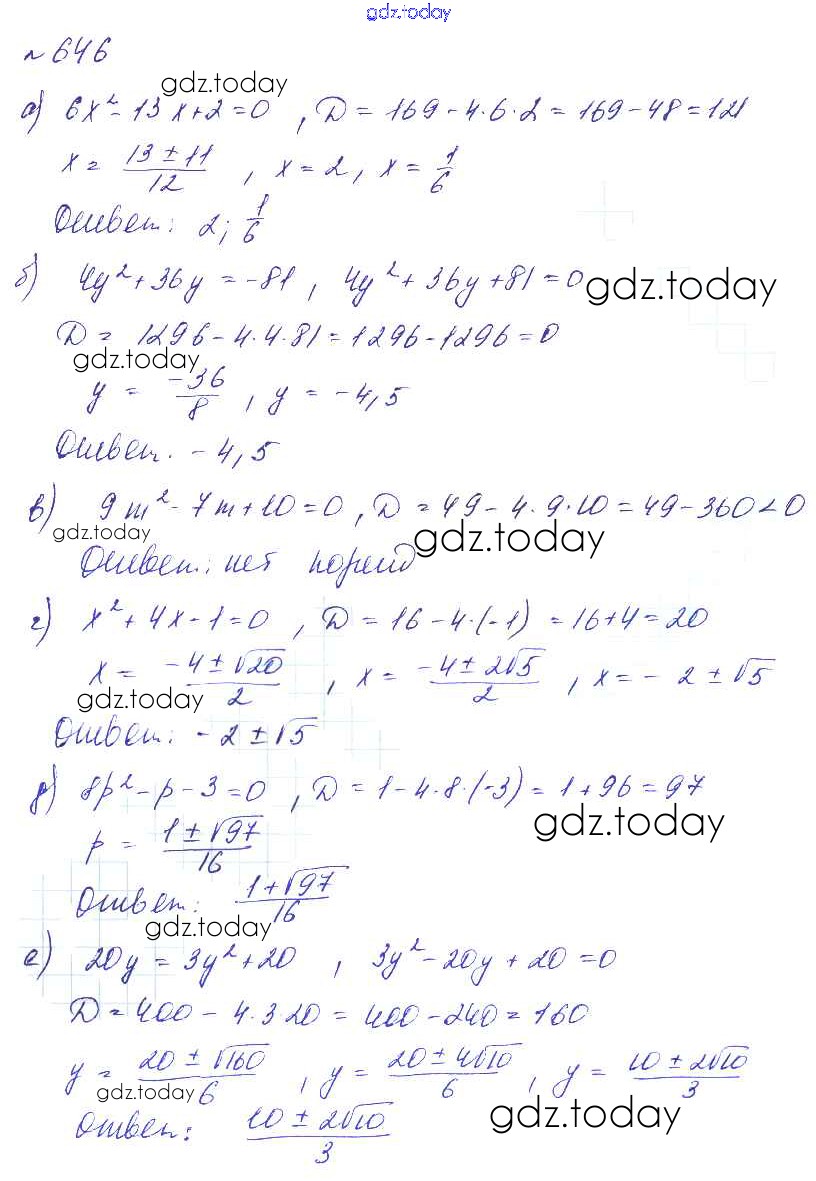 gdz.today
№646
gdz.today
а) 6x² - 13x + 2 = 0 , D = 169 - 4·6·2 = 169 - 48 = 121
x = (13 ± 11)/12 , x = 2, x = 1/6
Ответ: 2; 1/6
б) 4y² + 36y = -81 , 4y² + 36y + 81 = 0 gdz.today
D = 1296 - 4·4·81 = 1296 - 1296 = 0
gdz.today
y = -36/8 , y = -4,5
Ответ. -4,5
в) 9m² - 7m + 10 = 0 , D = 49 - 4·9·10 = 49 - 360 < 0
gdz.today gdz.today
Ответ: нет корней
г) x² + 4x - 1 = 0 , D = 16 - 4·(-1) = 16 + 4 = 20
x = (-4 ± √20)/2 , x = (-4 ± 2√5)/2 , x = -2 ± √5
gdz.today
Ответ: -2 ± √5
д) 8p² - p - 3 = 0 , D = 1 - 4·8·(-3) = 1 + 96 = 97
gdz.today
p = (1 ± √97)/16
Ответ: (1 + √97)/16
gdz.today
е) 20y = 3y² + 20 , 3y² - 20y + 20 = 0
D = 400 - 4·3·20 = 400 - 240 = 160
y = (20 ± √160)/6 , y = (20 ± 4√10)/6 , y = (10 ± 2√10)/3
gdz.today
Ответ: (10 ± 2√10)/3
gdz.today